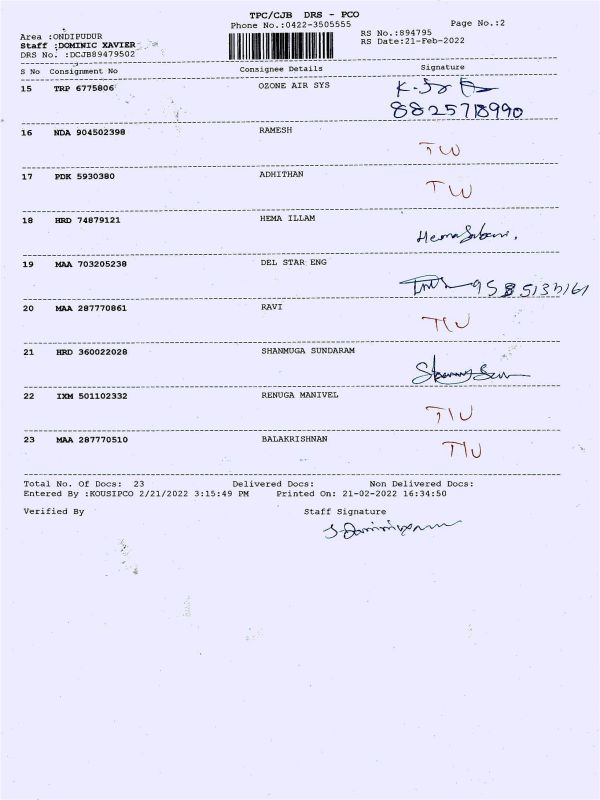 TPC/CJB DRS - PCO
Phone No.:0422-3505555 Page No.:2
Area :ONDIPUDUR RS No.:894795
Staff :DOMINIC XAVIER RS Date:21-Feb-2022
DRS No. :DCJB89479502
S No Consignment No Consignee Details Signature
15 TRP 6775806 OZONE AIR SYS
8825718990
16 NDA 904502398 RAMESH
TW
17 PDK 5930380 ADHITHAN
TW
18 HRD 74879121 HEMA ILLAM
19 MAA 703205238 DEL STAR ENG
20 MAA 287770861 RAVI
TW
21 HRD 360022028 SHANMUGA SUNDARAM
22 IXM 501102332 RENUGA MANIVEL
TW
23 MAA 287770510 BALAKRISHNAN
TW
Total No. Of Docs: 23 Delivered Docs: Non Delivered Docs:
Entered By :KOUSIPCO 2/21/2022 3:15:49 PM Printed On: 21-02-2022 16:34:50
Verified By Staff Signature